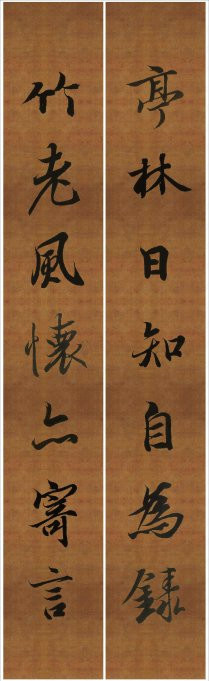 亭林日知自為錄
竹老風懷亦寄言